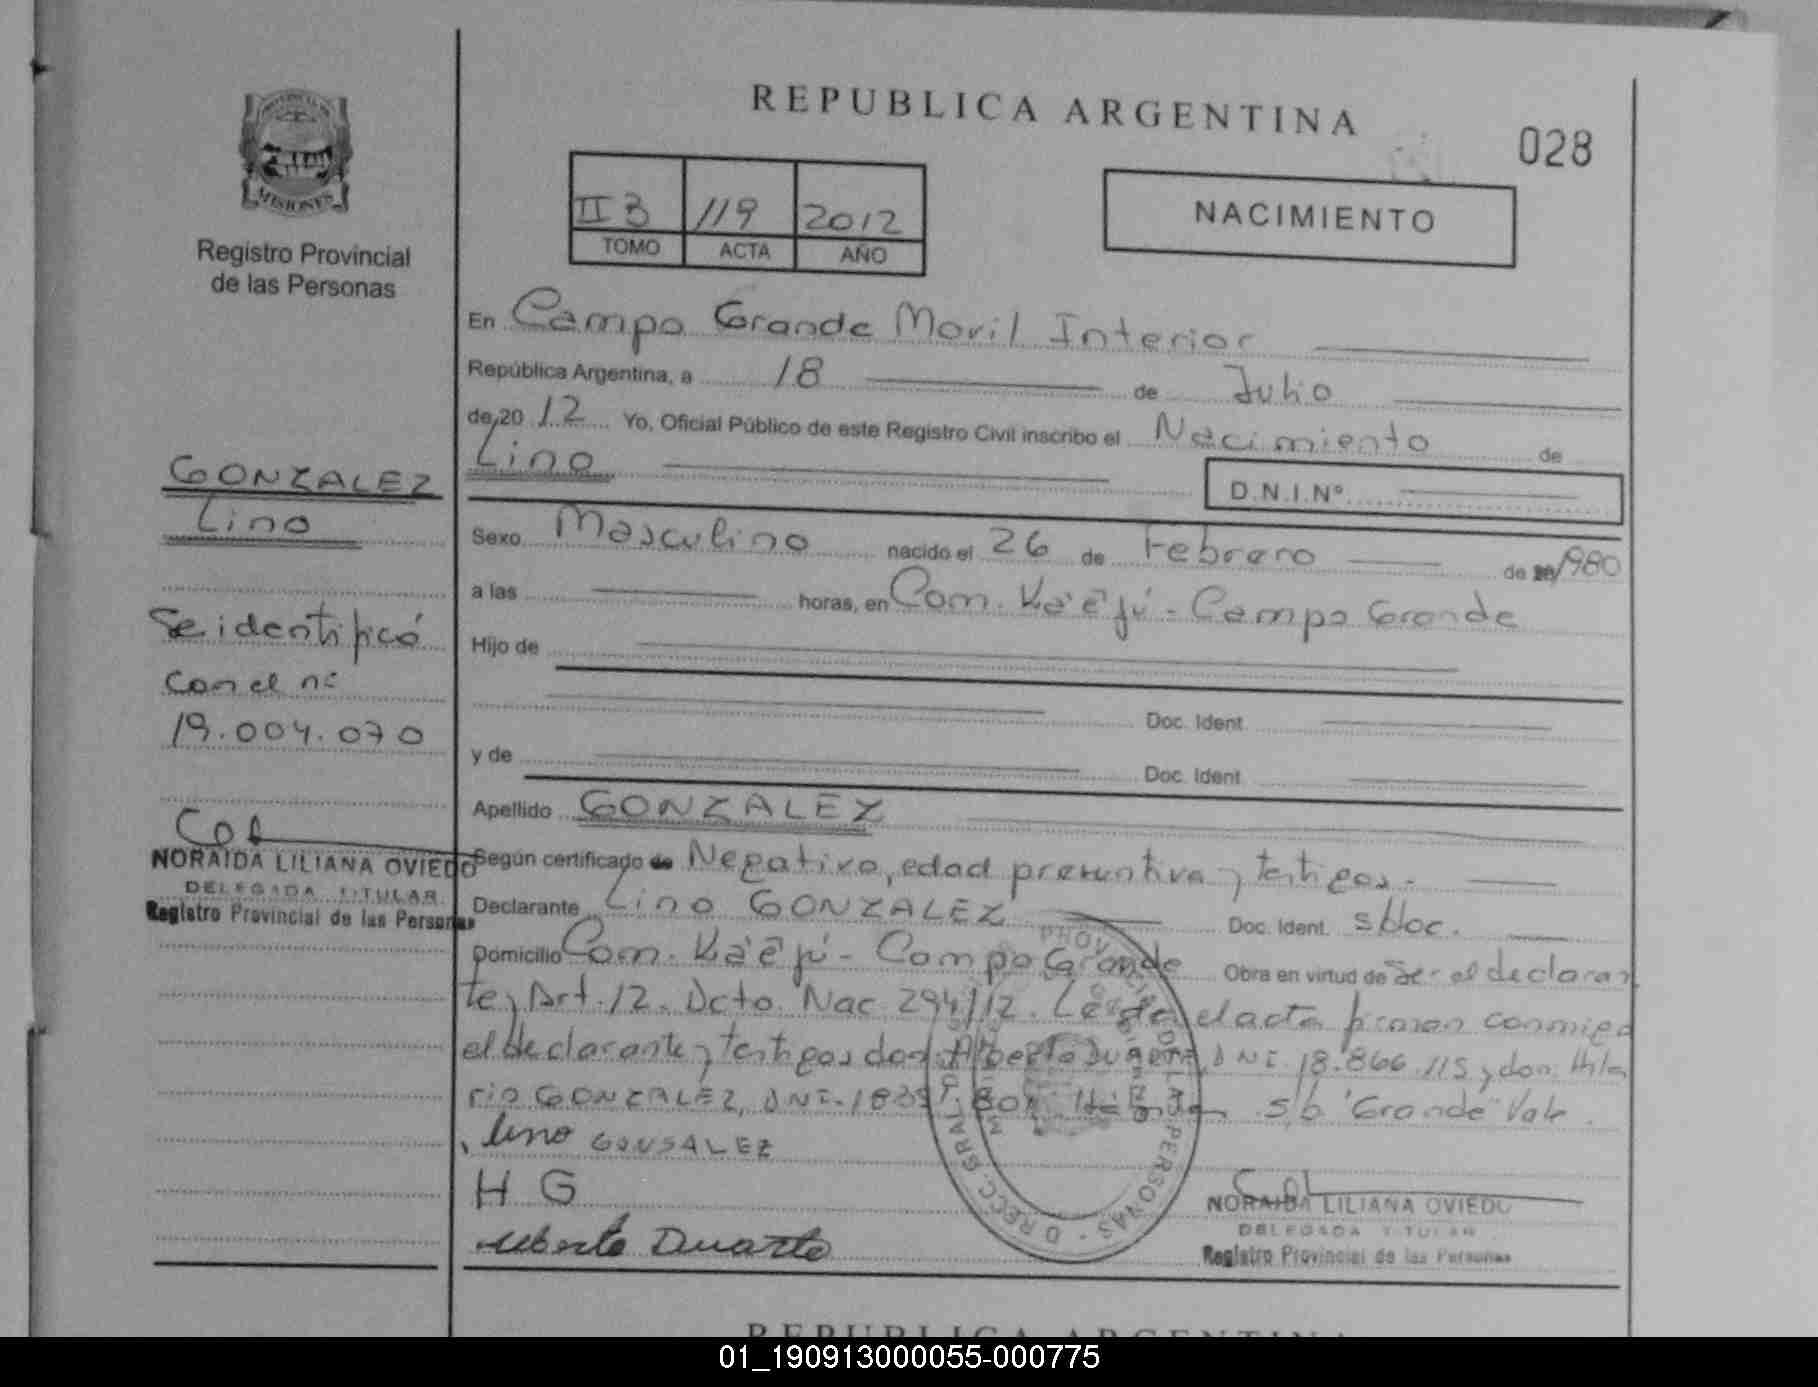 REPUBLICA ARGENTINA
028
MISIONES
Registro Provincial
de las Personas
II B 119 2012
TOMO ACTA AÑO
NACIMIENTO
En Campo Grande Movil Interior
República Argentina, a 18 de Julio
de 20 12 Yo, Oficial Público de este Registro Civil inscribo el Nacimiento de
Lino
D.N.I.Nº
GONZALEZ
Lino
Se identificó
con el nº
19.004.070
NORAIDA LILIANA OVIEDO
DELEGADA TITULAR
Registro Provincial de las Personas
Sexo Masculino nacido el 26 de Febrero de 1980
a las horas, en Com. Ka'ẽ jú - Campo Grande
Hijo de
Doc. Ident.
y de Doc. Ident.
Apellido GONZALEZ
Según certificado de Negativo, edad presuntiva y testigos.
Declarante Lino GONZALEZ Doc. Ident. s/doc.
Domicilio Com. Ka'ẽ jú - Campo Grande Obra en virtud de Ser el declaran
te y Art. 12. Dcto. Nac. 294/12. Leída el acta firman conmigo
el declarante y testigos don Alberto Duarte, DNI. 18.866.115 y don Hila
rio GONZALEZ, DNI. s/b "Grande" Vale.
Lino GONSALEZ
H G
Alberto Duarte
NORAIDA LILIANA OVIEDO
DELEGADA TITULAR
Registro Provincial de las Personas
REPUBLICA ARGENTINA
01_190913000055-000775